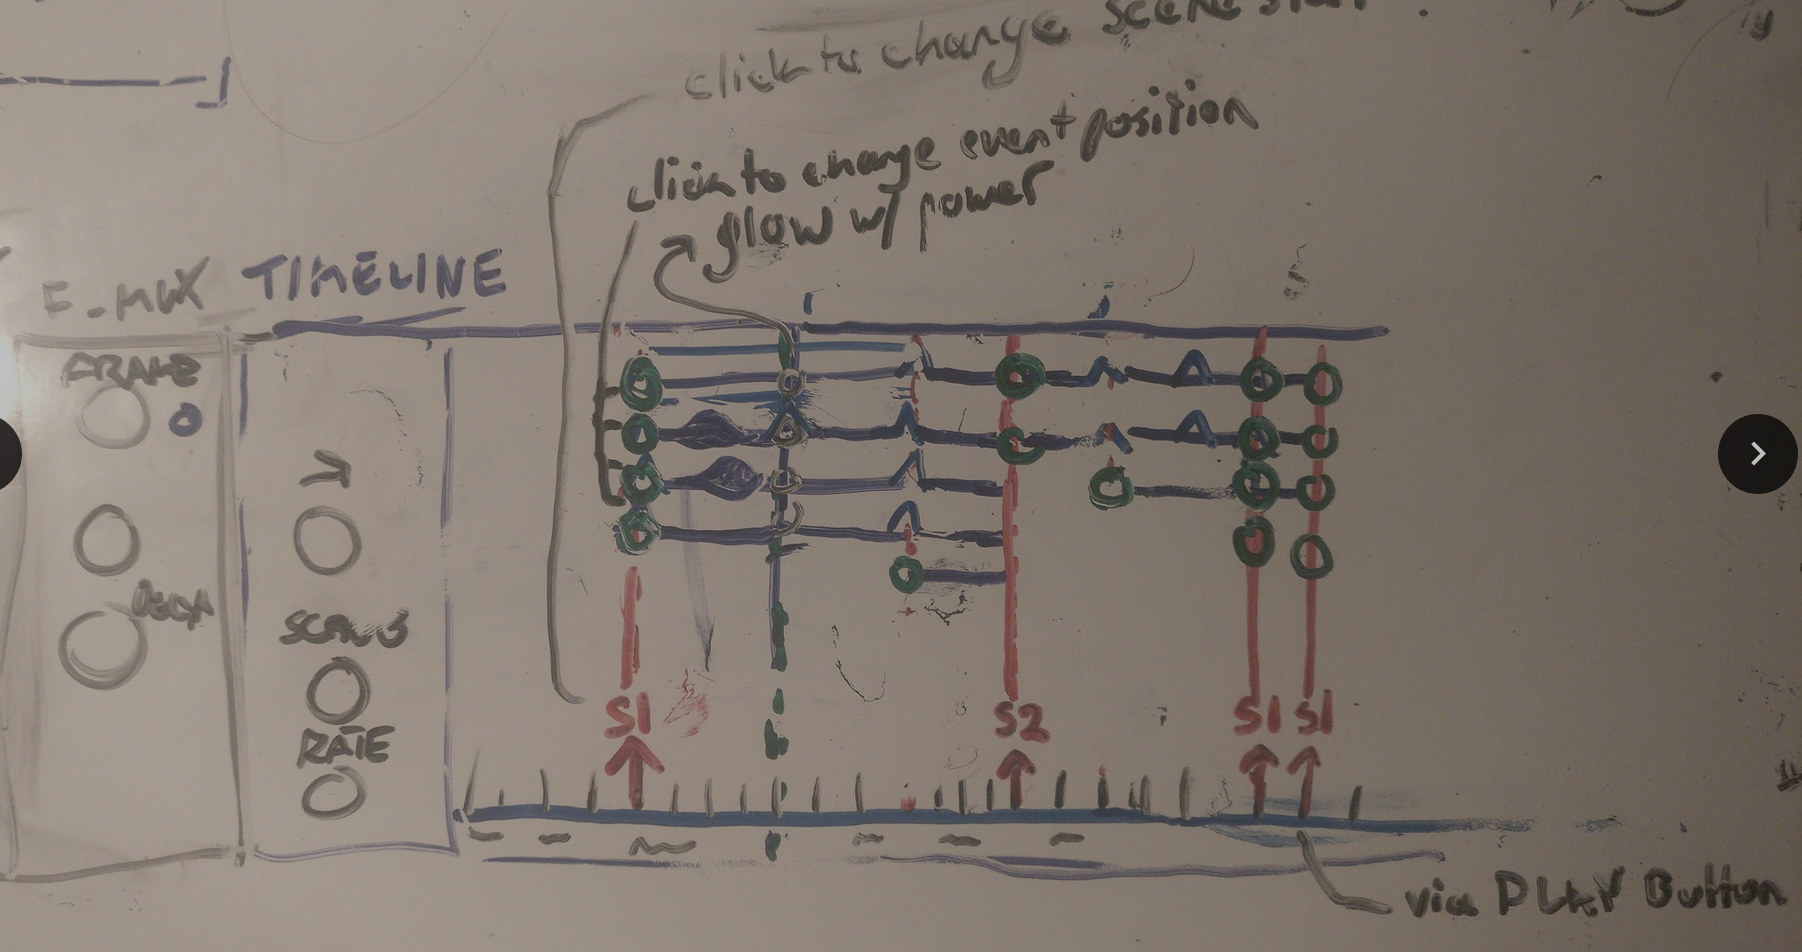 click to change scene start
click to change event position
glow w/ power
TIMELINE
FRAME
SCRUB
RATE
S1
S2
S1
S1
via PLAY Button